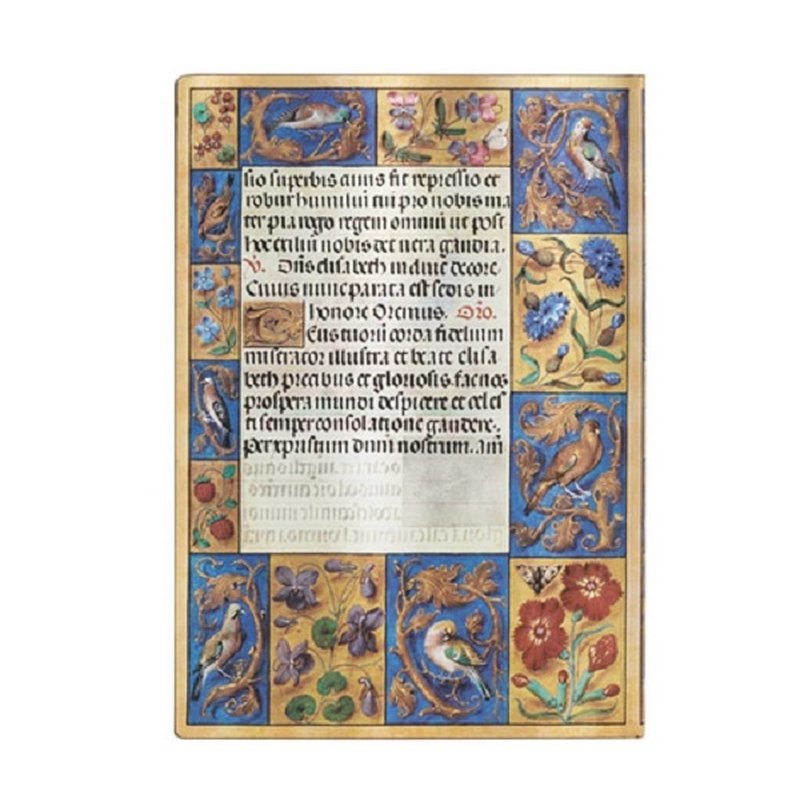 sio superbis cuius fit repressio et
robur humiliū tui pro nobis ma
ter pia rogo regem omniū ut post
hoc exiliū nobis det vera gaudia.
V. Dn̄s elisabeth induit decore
Cuius nunc parata est sedis in
honore Oremus. Or̄o.
Tuorū corda fidelium
miserator illustra et beate elisa
beth precibus et gloriosis fac nos
prospera mundi despicere et celes
ti semper consolatione gaudere.
Per xp̄istum dnm̄ nostrum. am̄